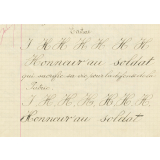 J H. H. H. H. H. H.
Honneur au soldat
qui sacrifie sa vie pour la défense de la
Patrie
J H. H. H. H. H. H.
Honneur au soldat